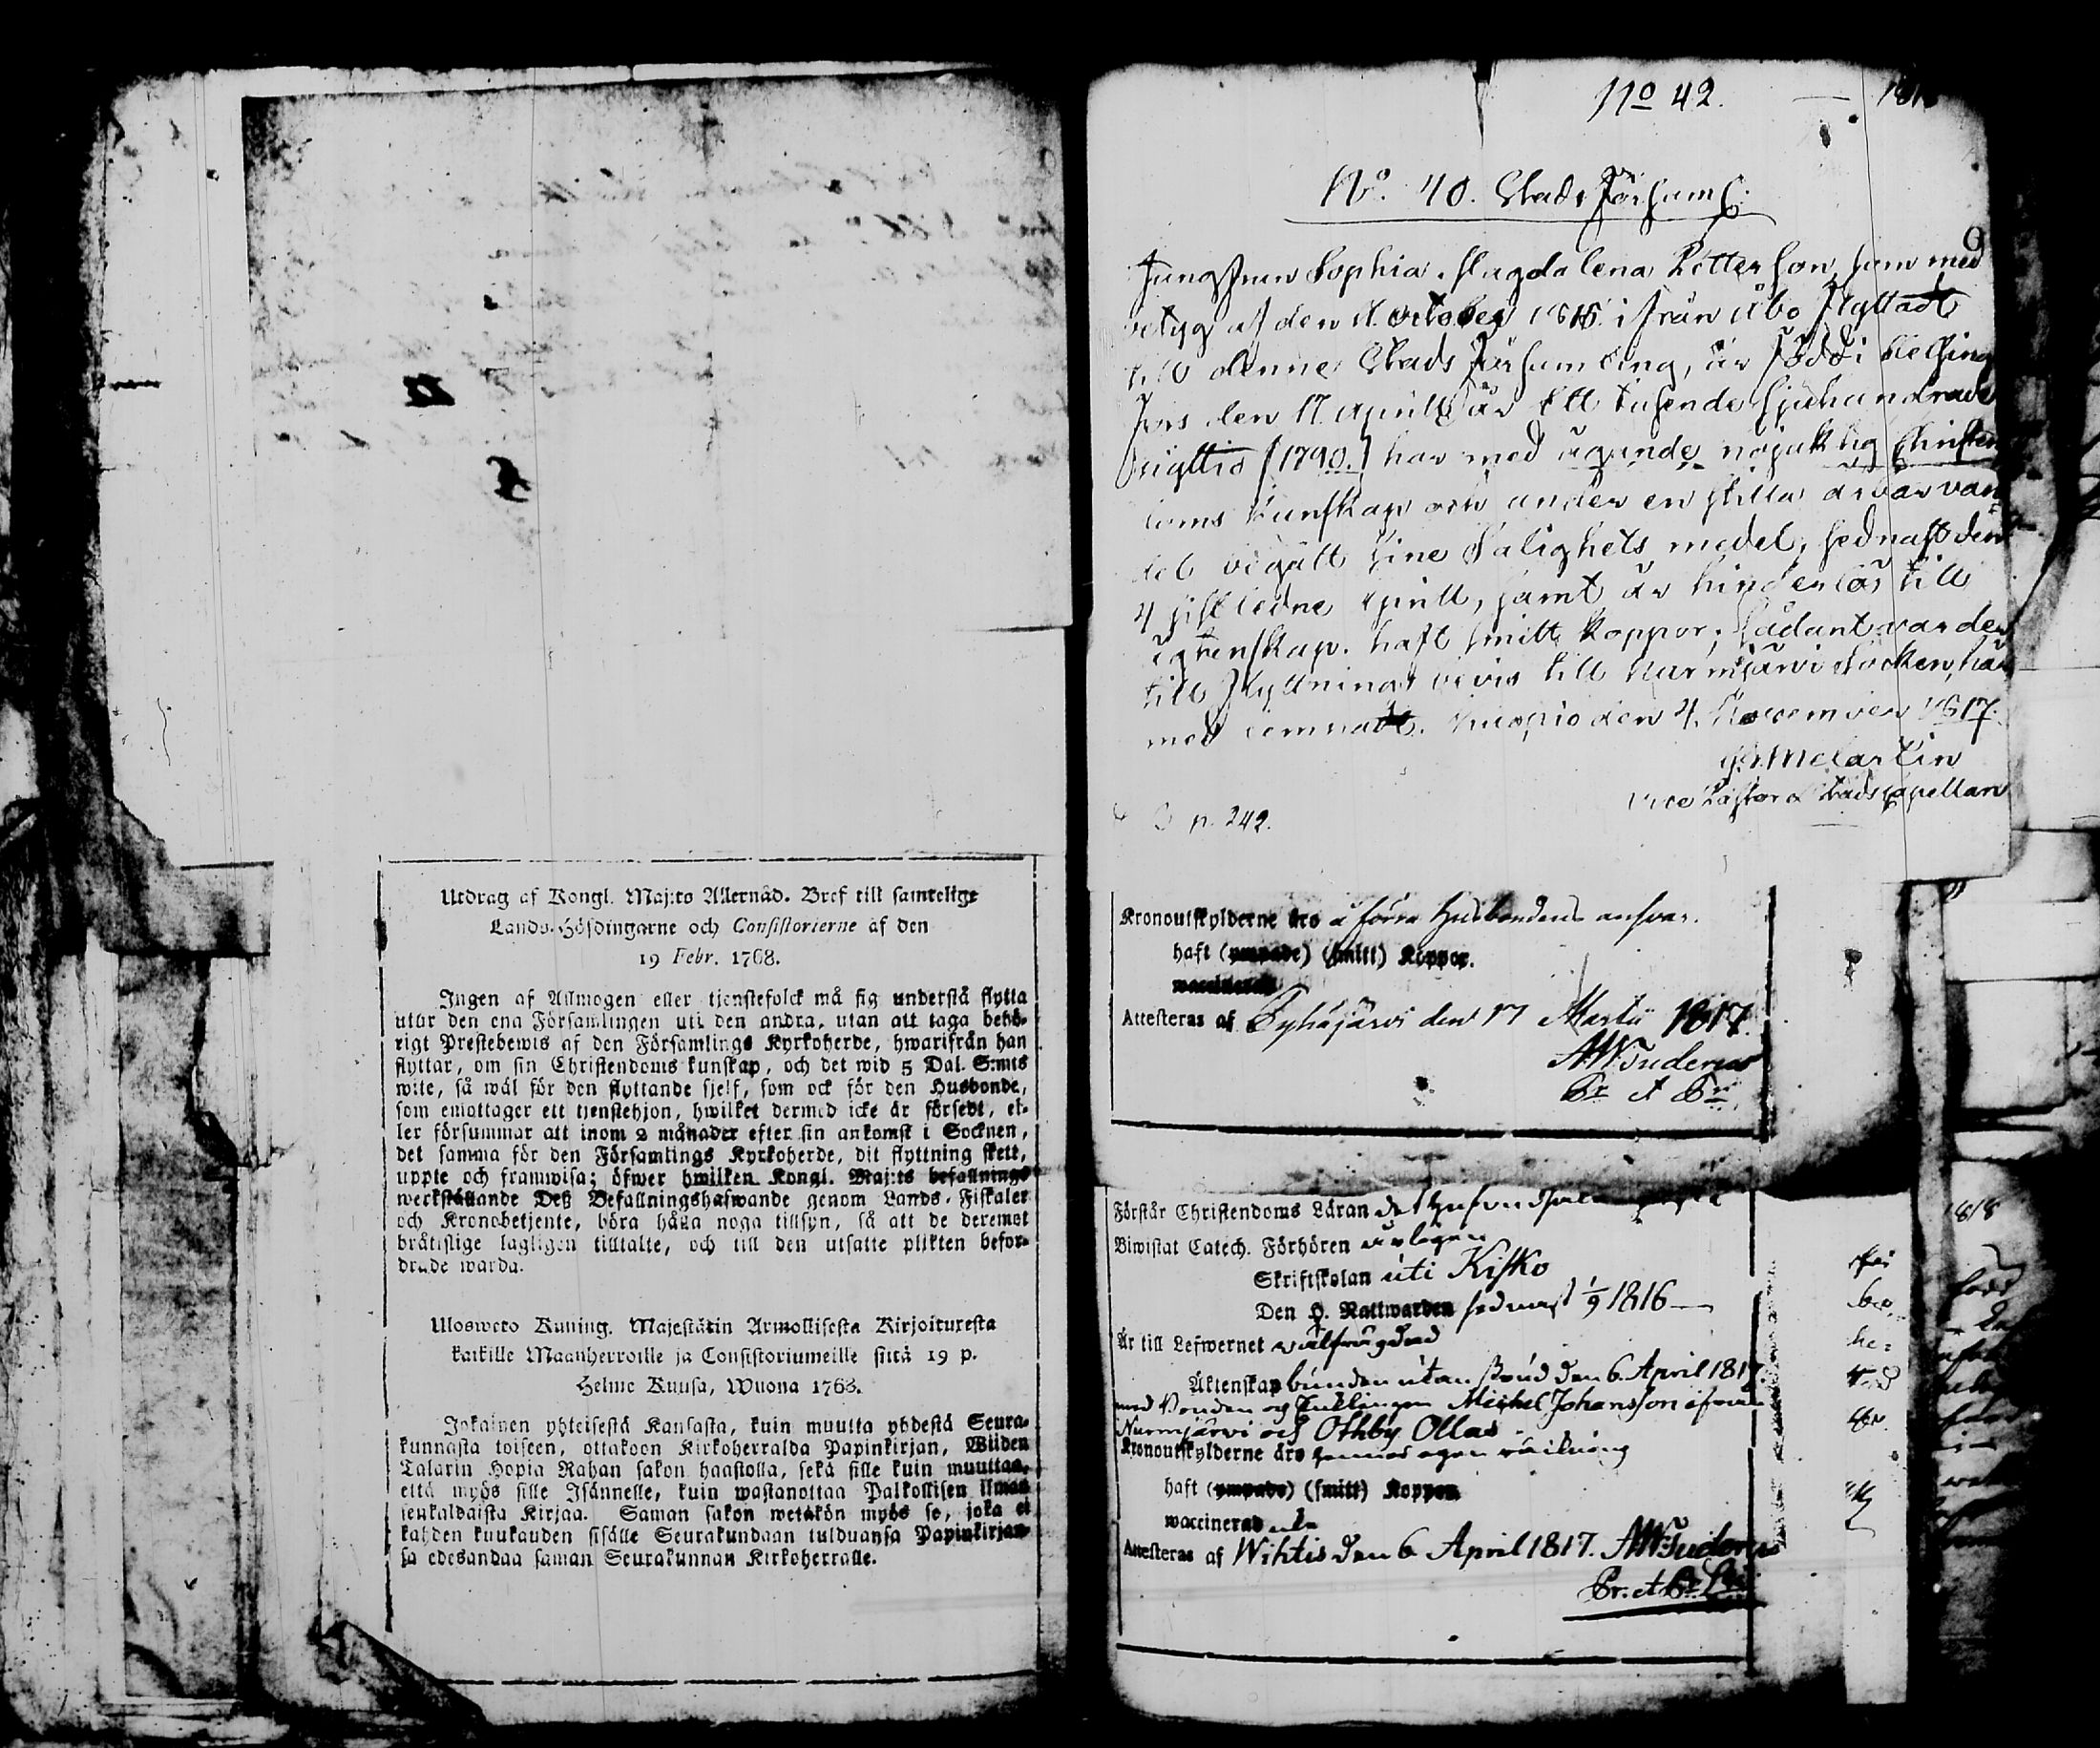 Utdrag af Kongl. Maj:ts Allernåd. Bref till samtelige
Lands-Höfdingarne och Consistorierne af den
19 Febr. 1768.
Ingen af Allmogen eller tjenstefolck må sig understå flytta
utur den ena Församlingen uti den andra, utan att taga behö-
rigt Prestebewis af den Församlings Kyrkoherde, hwarifrån han
flyttar, om sin Christendoms kunskap, och det wid 5 Dal. S:mts
wite, så wäl för den flyttande sjelf, som ock för den Husbonde,
som emottager ett tjenstehjon, hwilket dermed icke är försedt, el-
ler försummar att inom 2 månader efter sin ankomst i Socknen,
det samma för den Församlings Kyrkoherde, dit flyttning skett,
uppte och framwisa; öfwer hwilken Kongl. Maj:ts befallnings
werkställande Deß Befallningshafwande genom Lands-Fiskaler
och Kronobetjente, böra hålla noga tillsyn, så att de deremot
bråtislige lagligen tilltalte, och till den utsatte plikten befor-
drade warda.
Uloswero Kuning. Majestätin Armollisesta Kirjoituresta
kaikille Maanherroille ja Consistoriumeille siitä 19 p.
Helme Kuusa, Wuona 1768.
Jokainen yhteisestä Kansasta, kuin muutta yhdestä Seura-
kunnasta toiseen, ottakoon Kirkoherralda Papinkirjan, Wiiden
Talarin Hopia Rahan sakon haastolla, sekä sille kuin muuttaa,
että myös sille Isännelle, kuin wastanottaa Palkollisen ilman
senkaldaista Kirjaa. Saman sakon wetäkön myös se, joka ei
kahden kuukauden sisälle Seurakundaan tulduansa Papinkirjan-
sa edesandaa saman Seurakunnan Kirkoherralle.
No 42.
No. 40. Stads Förs̈aml:
Jungfrun Sophia Magdalena Petterson som med
betyg af den 11 october 1816 ifrån Åbo flyttadt
till denne Stads Församling, är född i Helsing
fors den 17 aprill år Ett tusende sjuhundrade
nigttio [1790.] har med ägande nöjaktig Christen
doms kunskap och under en stilla ärbar van
del begått sine Salighets medel, sednast den
4 sistledne aprill, samt är hinderlös till
ägtenskap. haft smitt koppor; sådant varder
till flyttnings bevis till Nurmijärvi Socken, här
med lemnadt. Kuopio den 4 November 1817.
Melartin
vice Pastor & Stadscapellan
p. 242.
Kronoutskylderne äro å förra Husbondens ansvar.
haft (ympade) (smitt) Koppor.
waccinerad
Attesteras af Pyhäjärvi den 17 Martii 1817.
AWTudenus
Förstår Christendoms Läran
Biwistat Catech. Förhören
Skriftskolan uti Kisko
Den H. Nattwarden sednast 1/9 1816
Är till Lefwernet välfrägdad
Äktenskap bunden utan brud den 6. April 1817
med Bonden och Enklingen Michel Johansson ifrån
Nurmijärvi och Othby Ollas
Kronoutskylderne äro hennes egen räkning
haft (ympade) (smitt) Koppor
waccinerad
Attesteras af Wihtis den 6 April 1817. AWTudenus
1818